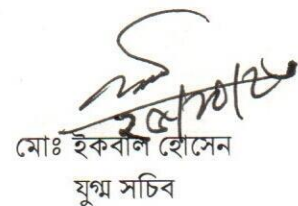 মোঃ ইকবাল হোসেন
যুগ্ম সচিব